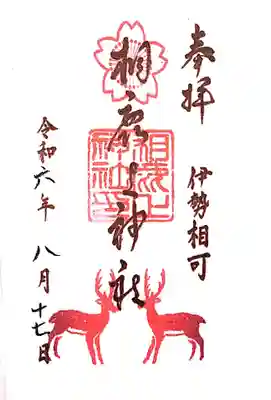 奉拝
伊勢相可
相鹿上神社
相鹿上
神社印
令和六年 八月 十七日